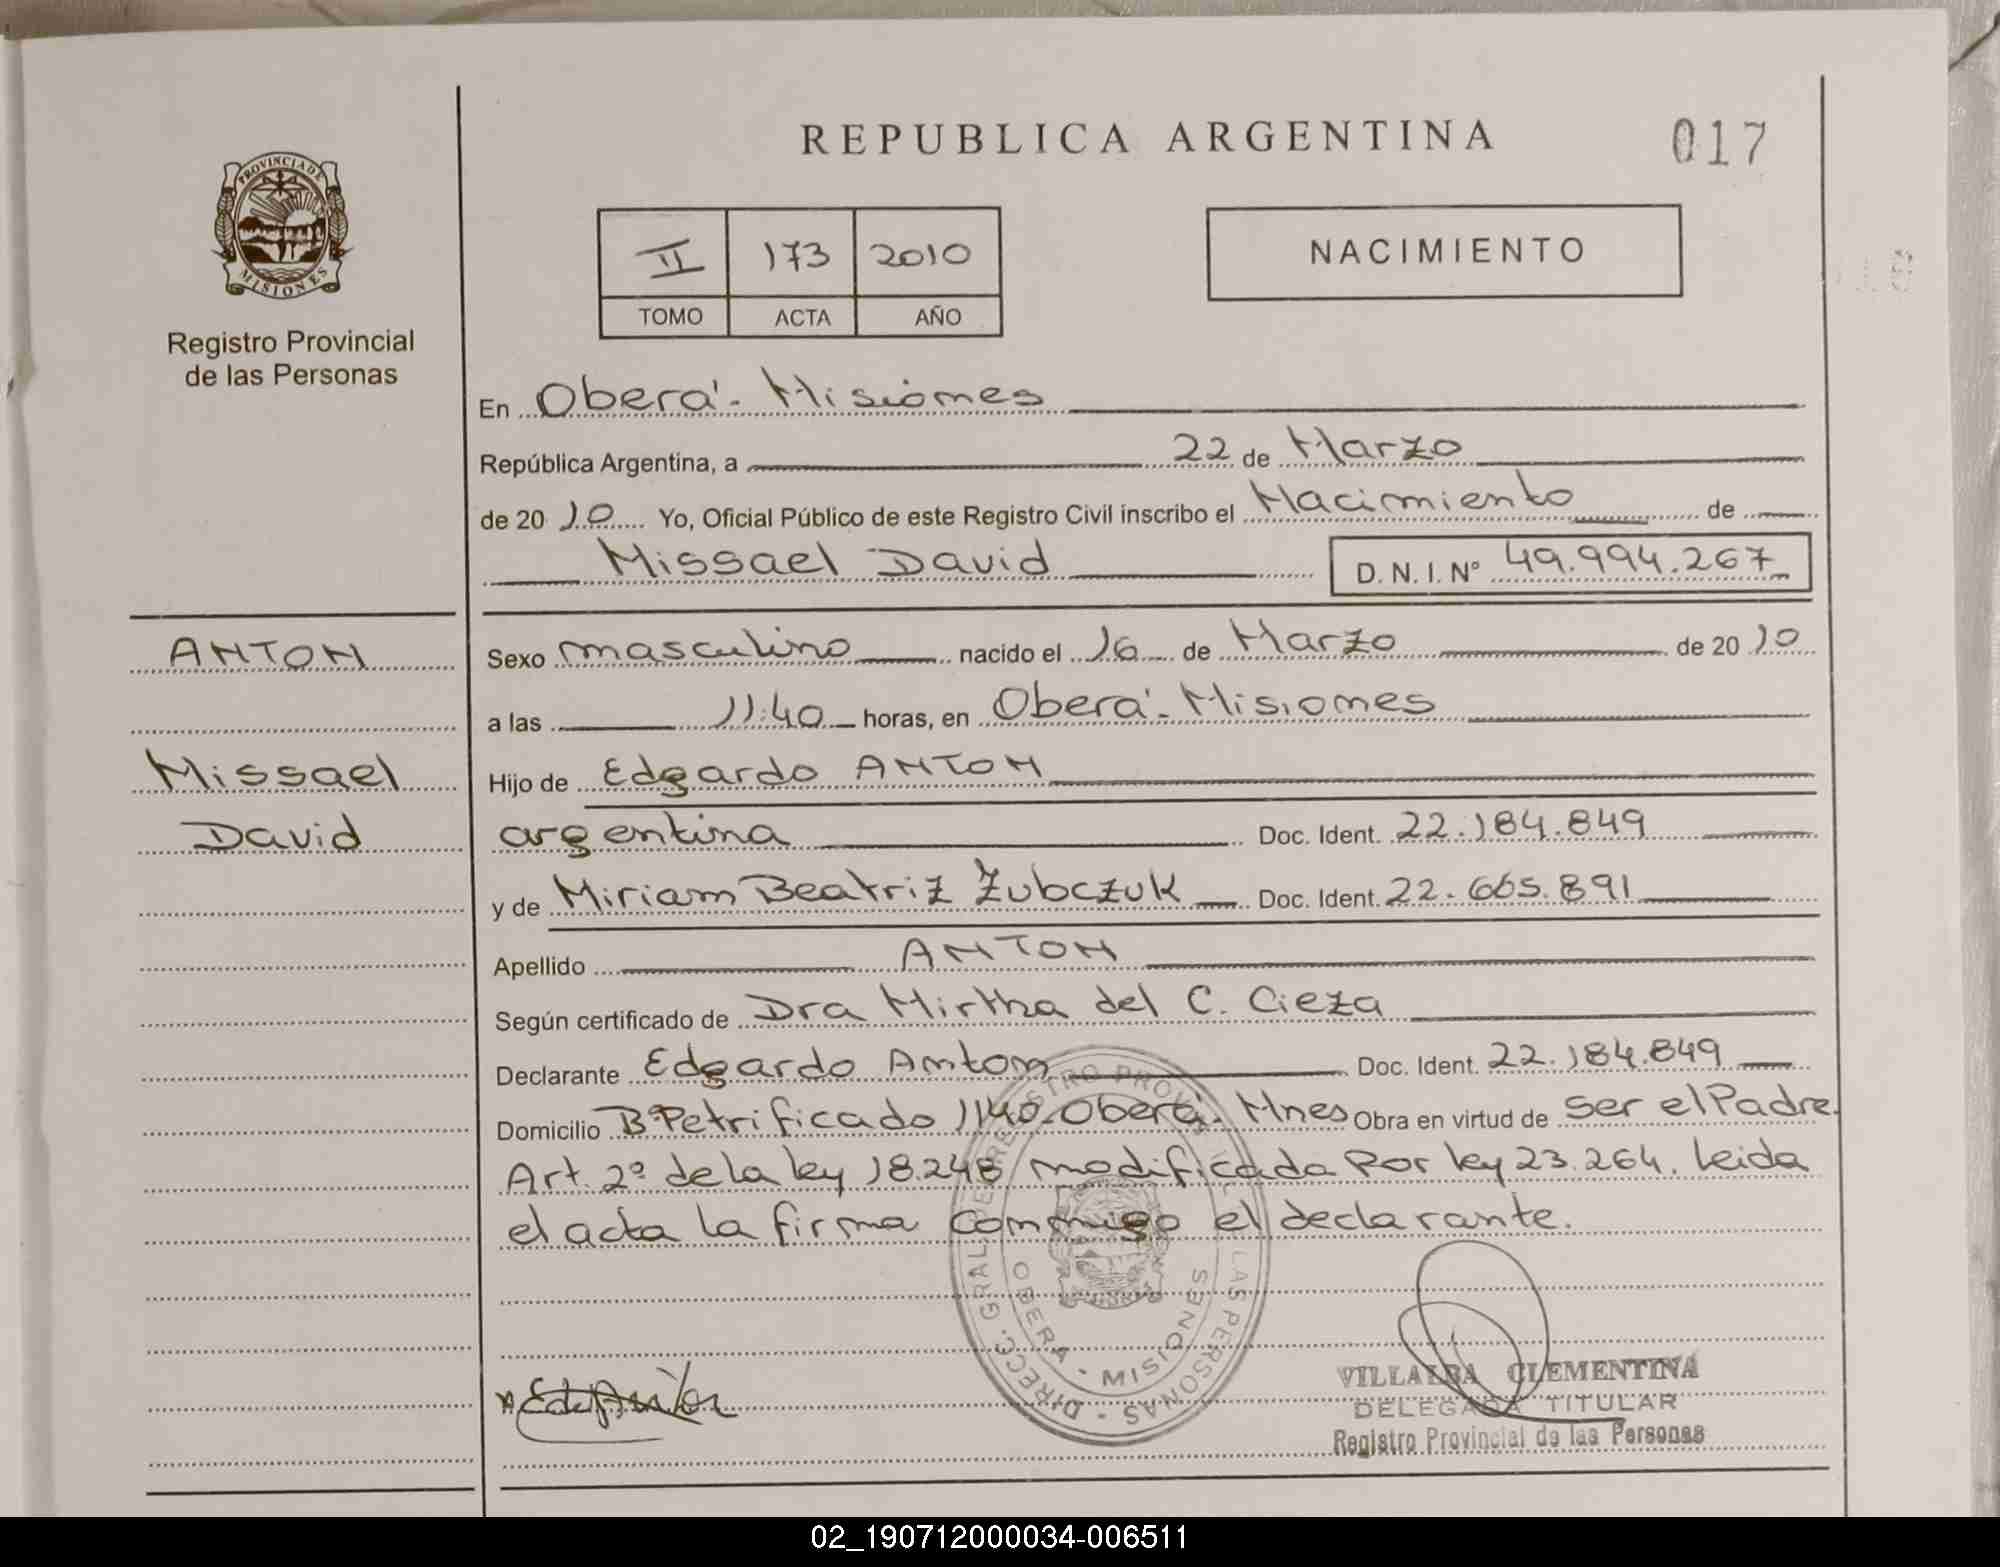 REPUBLICA ARGENTINA
017
PROVINCIA DE
MISIONES
Registro Provincial
de las Personas
II 173 2010
TOMO ACTA AÑO
NACIMIENTO
En Oberá - Misiones
República Argentina, a 22 de Marzo
de 20 10 Yo, Oficial Público de este Registro Civil inscribo el Nacimiento de
Missael David D.N.I. Nº 49.994.267
ANTON
Missael
David
Sexo masculino nacido el 16 de Marzo de 20 10
a las 11:40 horas, en Oberá - Misiones
Hijo de Edgardo ANTON
argentina Doc. Ident. 22.184.849
y de Miriam Beatriz Zubczuk Doc. Ident. 22.665.891
Apellido ANTON
Según certificado de Dra Mirtha del C. Cieza
Declarante Edgardo Anton Doc. Ident. 22.184.849
Domicilio Bº Petrificado 1140 - Oberá - Mnes Obra en virtud de ser el Padre.
Art. 2º de la ley 18.248 modificada por ley 23.264. Leida
el acta la firma conmigo el declarante.
DIRECC. GRAL. DE REGISTRO PROVINCIAL DE LAS PERSONAS
OBERA - MISIONES
VILLALBA CLEMENTINA
DELEGADA TITULAR
Registro Provincial de las Personas
02_190712000034-006511